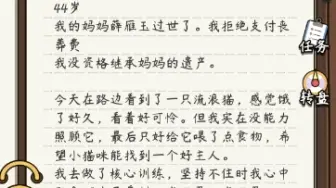 44岁
我的妈妈薛雁玉过世了。我拒绝支付丧
葬费
我没资格继承妈妈的遗产。
今天在路边看到了一只流浪猫，感觉饿
了好久，看着好可怜。但我实在没能力
照顾它，最后只好给它喂了点食物，希
望小猫咪能找到一个好主人。
我去做了核心训练，坚持不住时我心中
任务
转盘